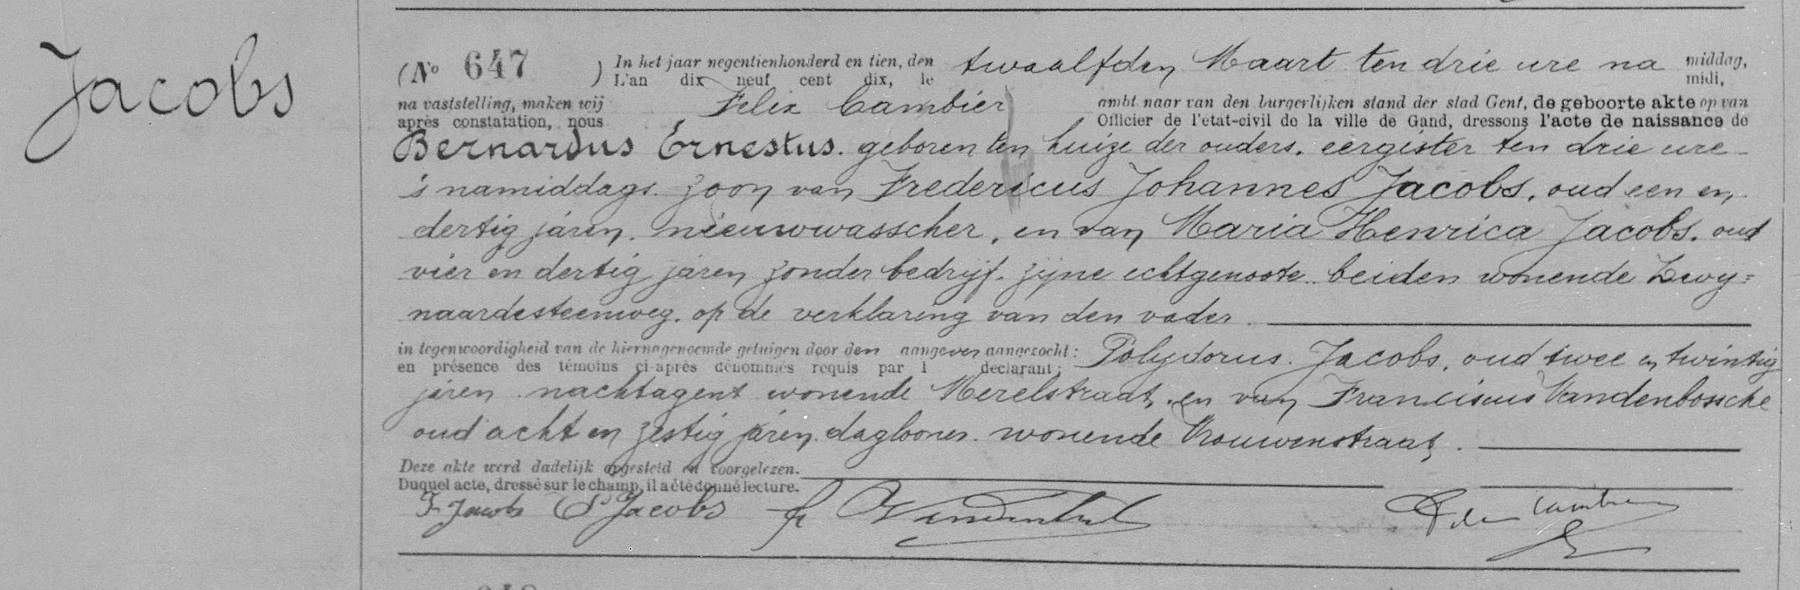 Jacobs
(No 647 ) In het jaar negentienhonderd en tien, den twaalfden Maart ten drie ure na middag,
L'an dix neuf cent dix, le midi,
na vaststelling, maken wij Felix Cambier ambtnaar van den burgerlijken stand der stad Gent, de geboorte akte op van
après constatation, nous Officier de l'etat-civil de la ville de Gand, dressons l'acte de naissance de
Bernardus Ernestus. geboren ten huize der ouders. eergister ten drie ure
's namiddags. zoon van Fredericus Johannes Jacobs, oud een en
dertig jaren. nieuwwasscher, en van Maria Henrica Jacobs. oud
vier en dertig jaren zonder bedrijf. zijne echtgenoote. beiden wonende Zwy=
naardesteenweg. op de verklaring van den vader.
in tegenwoordigheid van de hiernagenoemde getuigen door den aangever aangezocht: Polydorus. Jacobs, oud twee en twintig
en présence des témoins ci-après dénommés requis par l déclarant;
jaren nachtagent wonende Merelstraat, en van Franciscus Vandenbossche
oud acht en zestig jaren. daglooner. wonende Vrouwenstraat.
Deze akte werd dadelijk opgesteld en voorgelezen.
Duquel acte, dressé sur le champ, il a été donné lecture.
F Jacobs P Jacobs fr